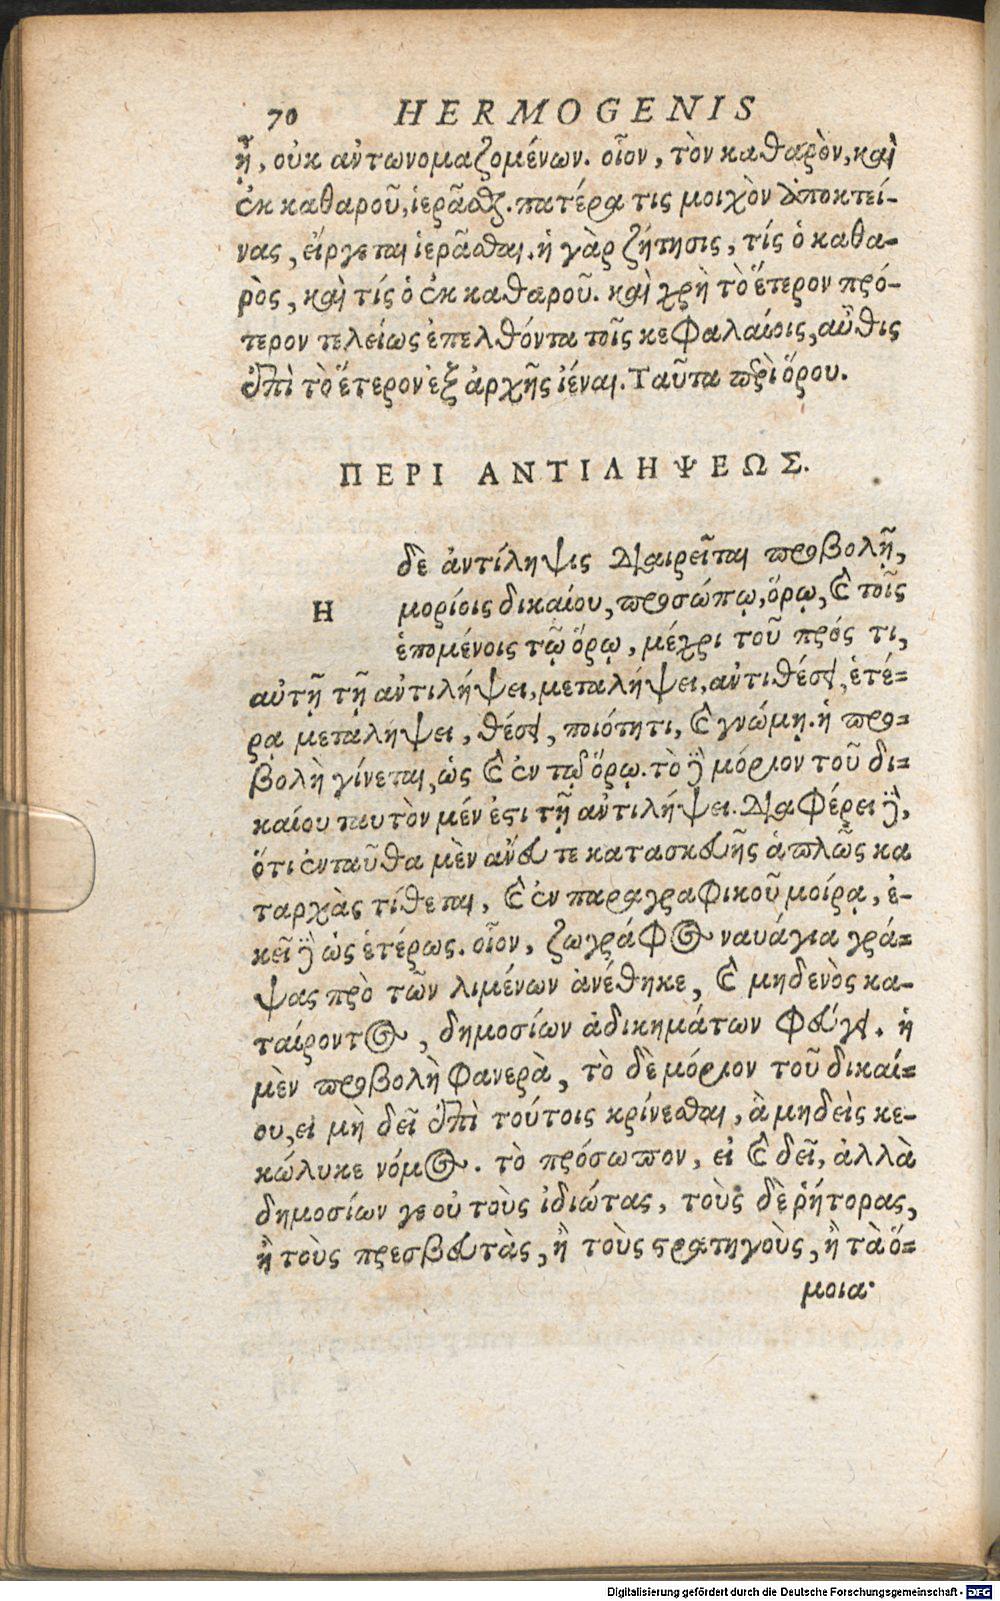 70 HERMOGENIS
ᾖ, οὐκ ἀντωνομαζομένων. οἷον, τὸν καθαρὸν, καὶ
ἐκ καθαροῦ, ἱερᾶσθ. πατέρα τις μοιχὸν ἀποκτεί-
νας, εἴργεται ἱερᾶσθαι. ἡ γὰρ ζήτησις, τίς ὁ καθα-
ρὸς, καὶ τίς ὁ ἐκ καθαροῦ. καὶ χρὴ τὸ ἕτερον πρό-
τερον τελείως ἐπελθόντα τοῖς κεφαλαίοις, αὖθις
ἐπὶ τὸ ἕτερον ἐξ ἀρχῆς ἰέναι. Ταῦτα περὶ ὅρου.
ΠΕΡΙ ΑΝΤΙΛΗΨΕΩΣ.
Η δὲ ἀντίληψις διαιρεῖται προβολῇ,
μορίοις δικαίου, προσώπῳ, ὅρῳ, καὶ τοῖς
ἑπομένοις τῷ ὅρῳ, μέχρι τοῦ πρός τι,
αὐτῇ τῇ ἀντιλήψει, μεταλήψει, ἀντιθέσει, ἑτέ-
ρᾳ μεταλήψει, θέσει, ποιότητι, καὶ γνώμῃ. ἡ προ-
βολὴ γίνεται, ὡς καὶ ἐν τῷ ὅρῳ. τὸ δὲ μόριον τοῦ δι-
καίου ταυτὸν μέν ἐστι τῇ ἀντιλήψει. διαφέρει δὲ,
ὅτι ἐνταῦθα μὲν ἄνευ τε κατασκευῆς ἁπλῶς κα
ταρχὰς τίθεται, καὶ ἐν παραγραφικοῦ μοίρᾳ, ἐ-
κεῖ δὲ ὡς ἑτέρως. οἷον, ζωγράφος ναυάγια γρά-
ψας πρὸ τῶν λιμένων ἀνέθηκε, καὶ μηδενὸς κα-
ταίροντος, δημοσίων ἀδικημάτων φεύγει. ἡ
μὲν προβολὴ φανερὰ, τὸ δὲ μόριον τοῦ δικαί-
ου, εἰ μὴ δεῖ ἐπὶ τούτοις κρίνεσθαι, ἃ μηδεὶς κε-
κώλυκε νόμος. τὸ πρόσωπον, εἰ καὶ δεῖ, ἀλλὰ
δημοσίων γε οὐ τοὺς ἰδιώτας, τοὺς δὲ ῥήτορας,
ἢ τοὺς πρεσβευτὰς, ἢ τοὺς στρατηγοὺς, ἢ τὰ ὅ-
μοια·
Digitalisierung gefördert durch die Deutsche Forschungsgemeinschaft - DFG